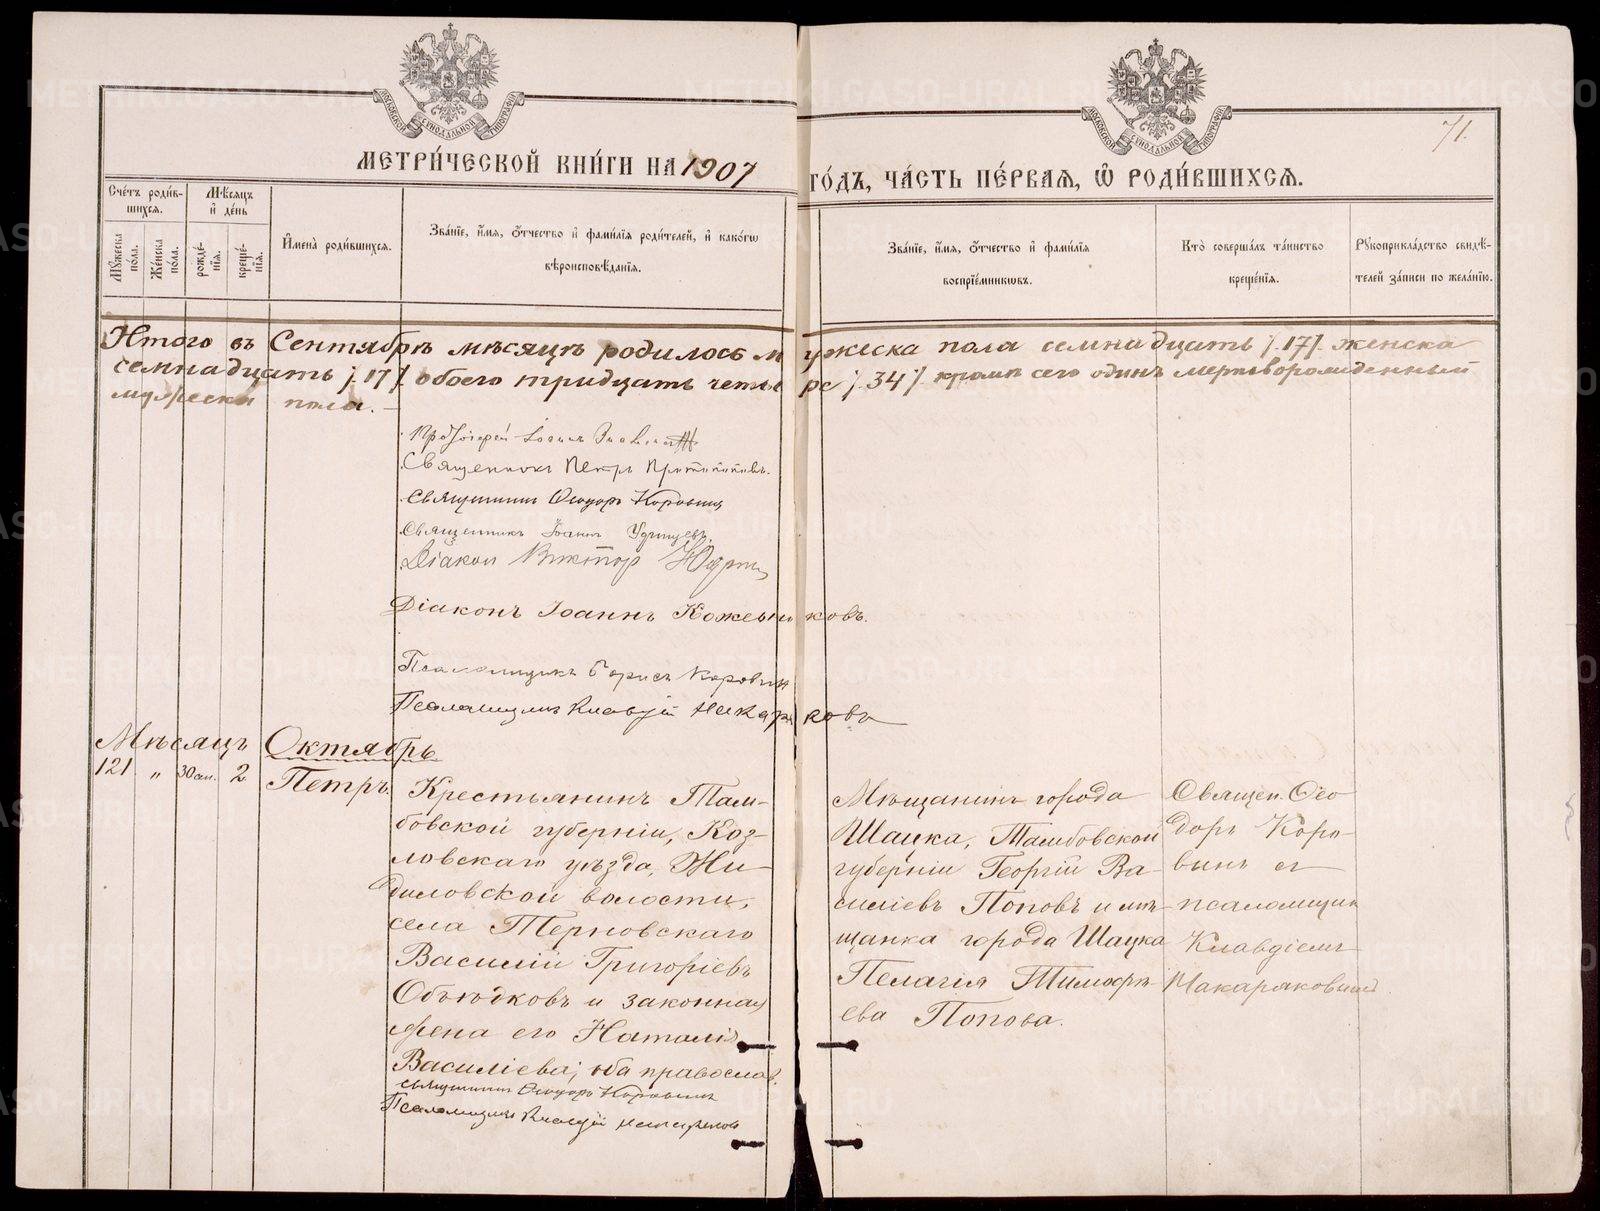 МЕТРИ́ЧЕСКОЙ КНИ́ГИ НА 1907 ГО́ДЪ, ЧА́СТЬ ПЕ́РВАЯ, Ѡ РОДИ́ВШИХСЯ.
71.
Сче́тъ роди́в-
шихся.
Мѣ́сяцъ
и҆ де́нь
Му́жеска
по́ла.
Же́нска
по́ла.
рожде́-
нїя.
креще́-
нїя.
И҆мена̀ роди́вшихся.
Зва́нїе, и҆́мя, ѻ҆́тчество и҆ фами́лїя роди́телей, и҆ како́гѡ
вѣроисповѣ́данїя.
Зва́нїе, и҆́мя, ѻ҆́тчество и҆ фами́лїя
воспрїе́мниковъ.
Кто̀ соверша́лъ та́инство
креще́нїя.
Рꙋкоприкла́дство свидѣ́-
телей за́писи по жела́нїю.
Итого въ Сентябрѣ мѣсяцѣ родилось мужеска пола семнадцать /.17/. женска
семнадцать /.17/. обоего тридцать четыре /.34/. кромѣ сего одинъ мертворожденный
мужеска пола.
Протоіерей Іоаннъ
Священникъ Петръ
Священникъ Ѳеодоръ Коровинъ
Священникъ Іоаннъ Удинцевъ.
Діаконъ Викторъ
Діаконъ Іоаннъ Кожевниковъ.
Псаломщикъ Борисъ Коровинъ
Псаломщикъ Клавдій Макаряковъ
Мѣсяцъ Октябрь
121 „ 30 сен. 2 Петръ.
Крестьянинъ Там-
бовской губерніи, Коз-
ловскаго уѣзда, Жи-
диловской волости,
села Терновскаго
Василій Григоріевъ
Объѣдковъ и законная
жена его Наталія
Василіева; оба православ.
Священникъ Ѳеодоръ Коровинъ
Псаломщикъ Клавдій Макаряковъ
Мѣщанинъ города
Шацка, Тамбовской
губерніи Георгій Ва-
силіевъ Поповъ и мѣ-
щанка города Шацка
Пелагія Тимоѳѣ-
ева Попова.
Священ. Ѳео-
доръ Коро-
винъ съ
псаломщик
Клавдіемъ
Макаряковымъ